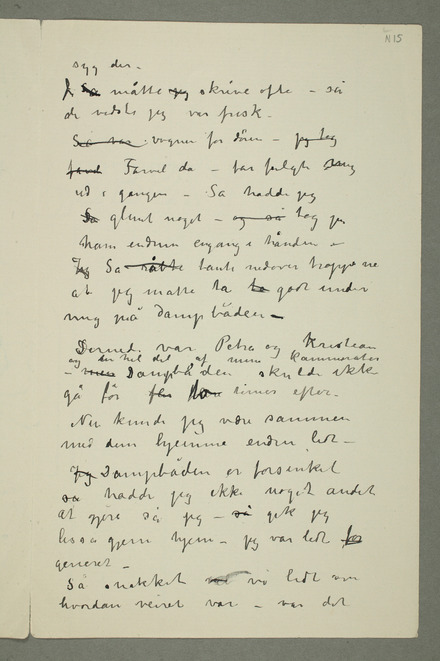 N 15
syg der –
J Sa måtte jeg skrive ofte – så
de vidste jeg var frisk –
Så var vognen for døren – jeg tog
farvel Farvel da – far fulgte mig
ud i gangen – Så hadde jeg
Så glemt noget – og så tog jeg
ham endnu engang i hånden –
Jeg Så sa tank nedover trappene
at jeg matte ta godt under
mig på Dampbåden –
Dernede var Petra og Kristian
og en hel del af mine kammerater
– men Dampbåden skulde ikke
gå før timer efter –
Nu kunde jeg være sammen
med dem hjemme endnu lidt –
Jeg Dampbåden er forsinket
sa hadde jeg ikke noget andet
at gjøre så jeg – så gik jeg
lissa gjern hjem – jeg var lidt
generet –
Så snakket vi lidt om
hvordan veiret var – var det